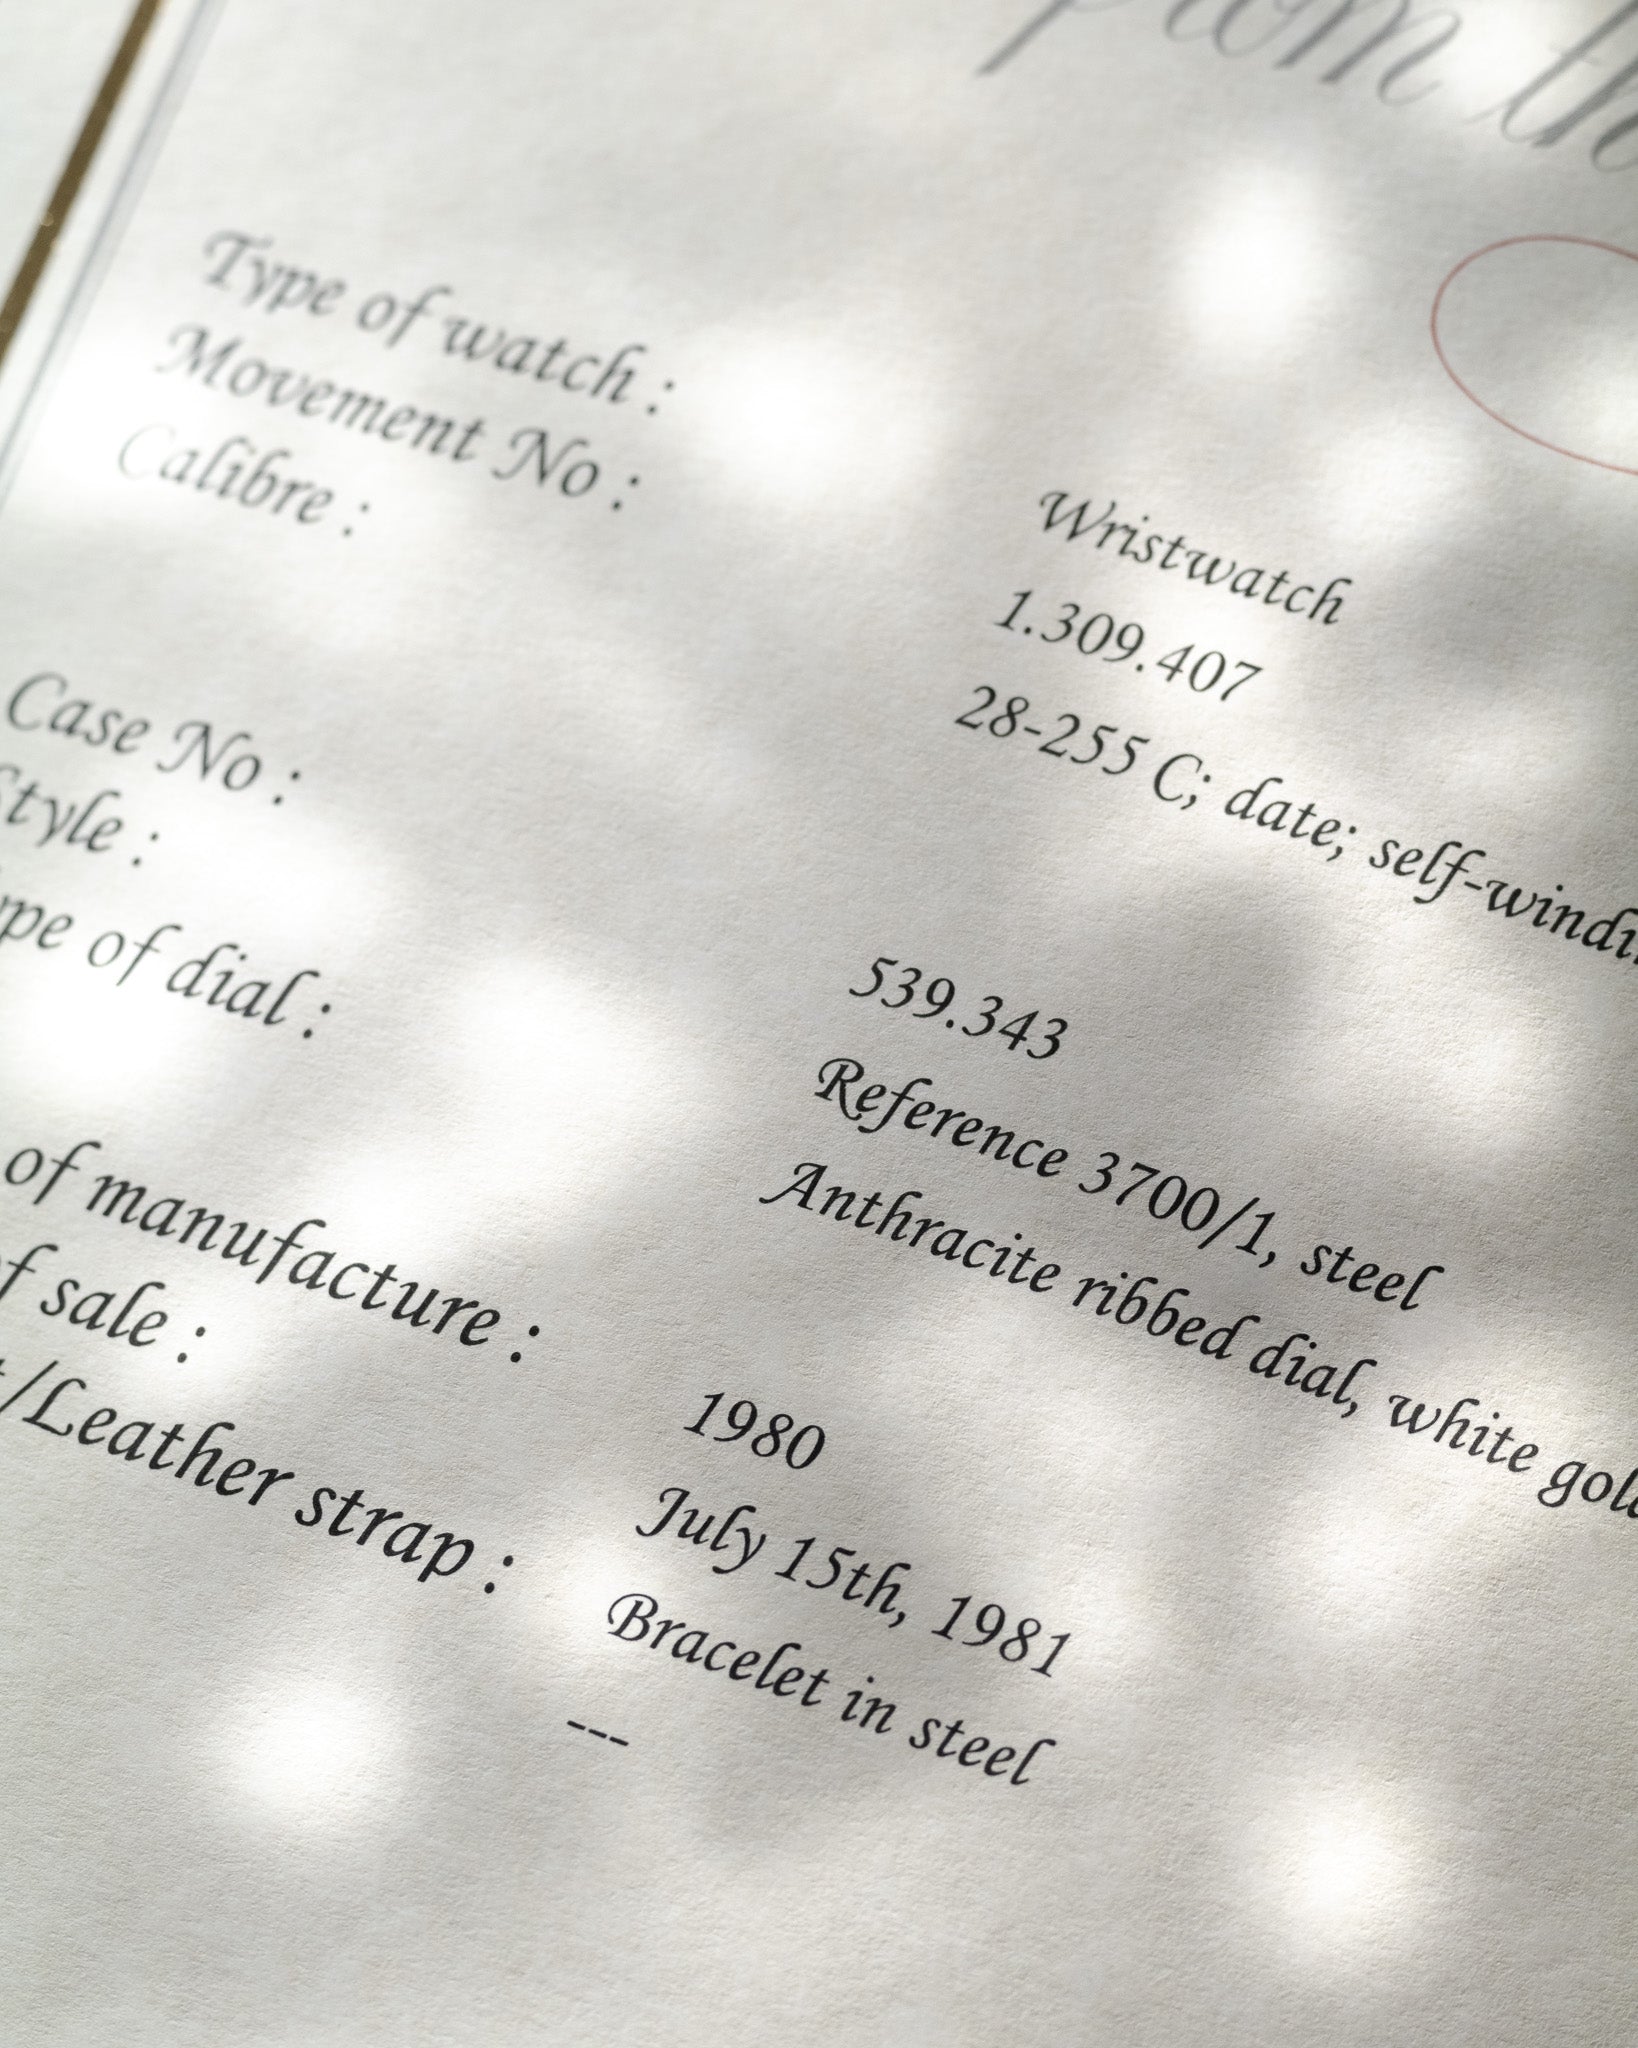 from the
Type of watch :
Movement No :
Calibre :
Wristwatch
1.309.407
28-255 C; date; self-windi
Case No :
Style :
pe of dial :
539.343
Reference 3700/1, steel
Anthracite ribbed dial, white gol
of manufacture :
of sale :
/Leather strap :
1980
July 15th, 1981
Bracelet in steel
---